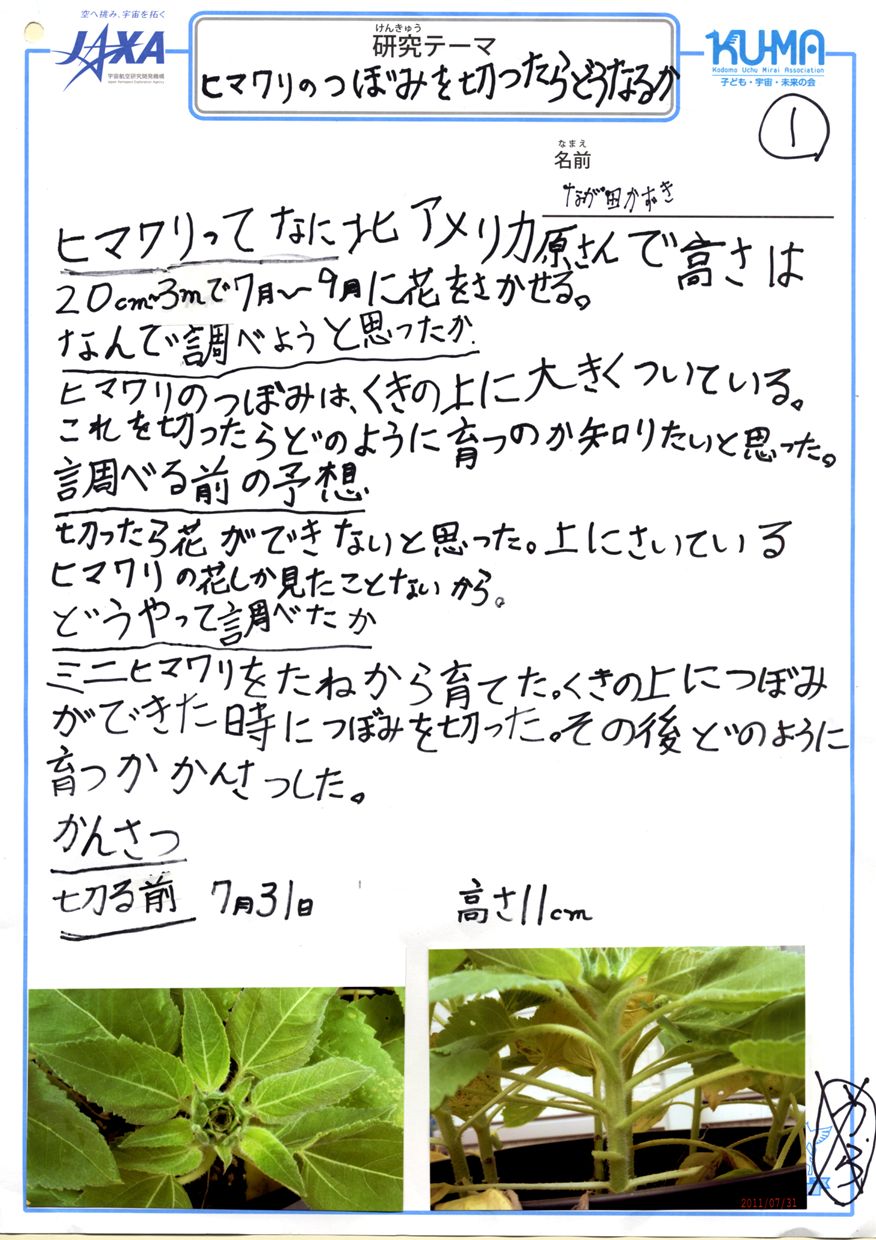 空へ挑み、宇宙を拓く
JAXA
宇宙航空研究開発機構
Japan Aerospace Exploration Agency
けんきゅう
研究テーマ
ヒマワリのつぼみを切ったらどうなるか
KU-MA
Kodomo Uchu Mirai Association
子ども・宇宙・未来の会
1
なまえ
名前
なが田かずき
ヒマワリってなに北アメリカ原さんで高さは
20cm~3mで7月~9月に花をさかせる。
なんで調べようと思ったか.
ヒマワリのつぼみは、くきの上に大きくついている。
これを切ったらどのように育つのか知りたいと思った。
調べる前の予想
切ったら花ができないと思った。上にさいている
ヒマワリの花しか見たことないから。
どうやって調べたか
ミニヒマワリをたねから育てた。くきの上につぼみ
ができた時につぼみを切った。その後どのように
育つかかんさつした。
かんさつ
切る前 7月31日 高さ11cm
2011/07/31